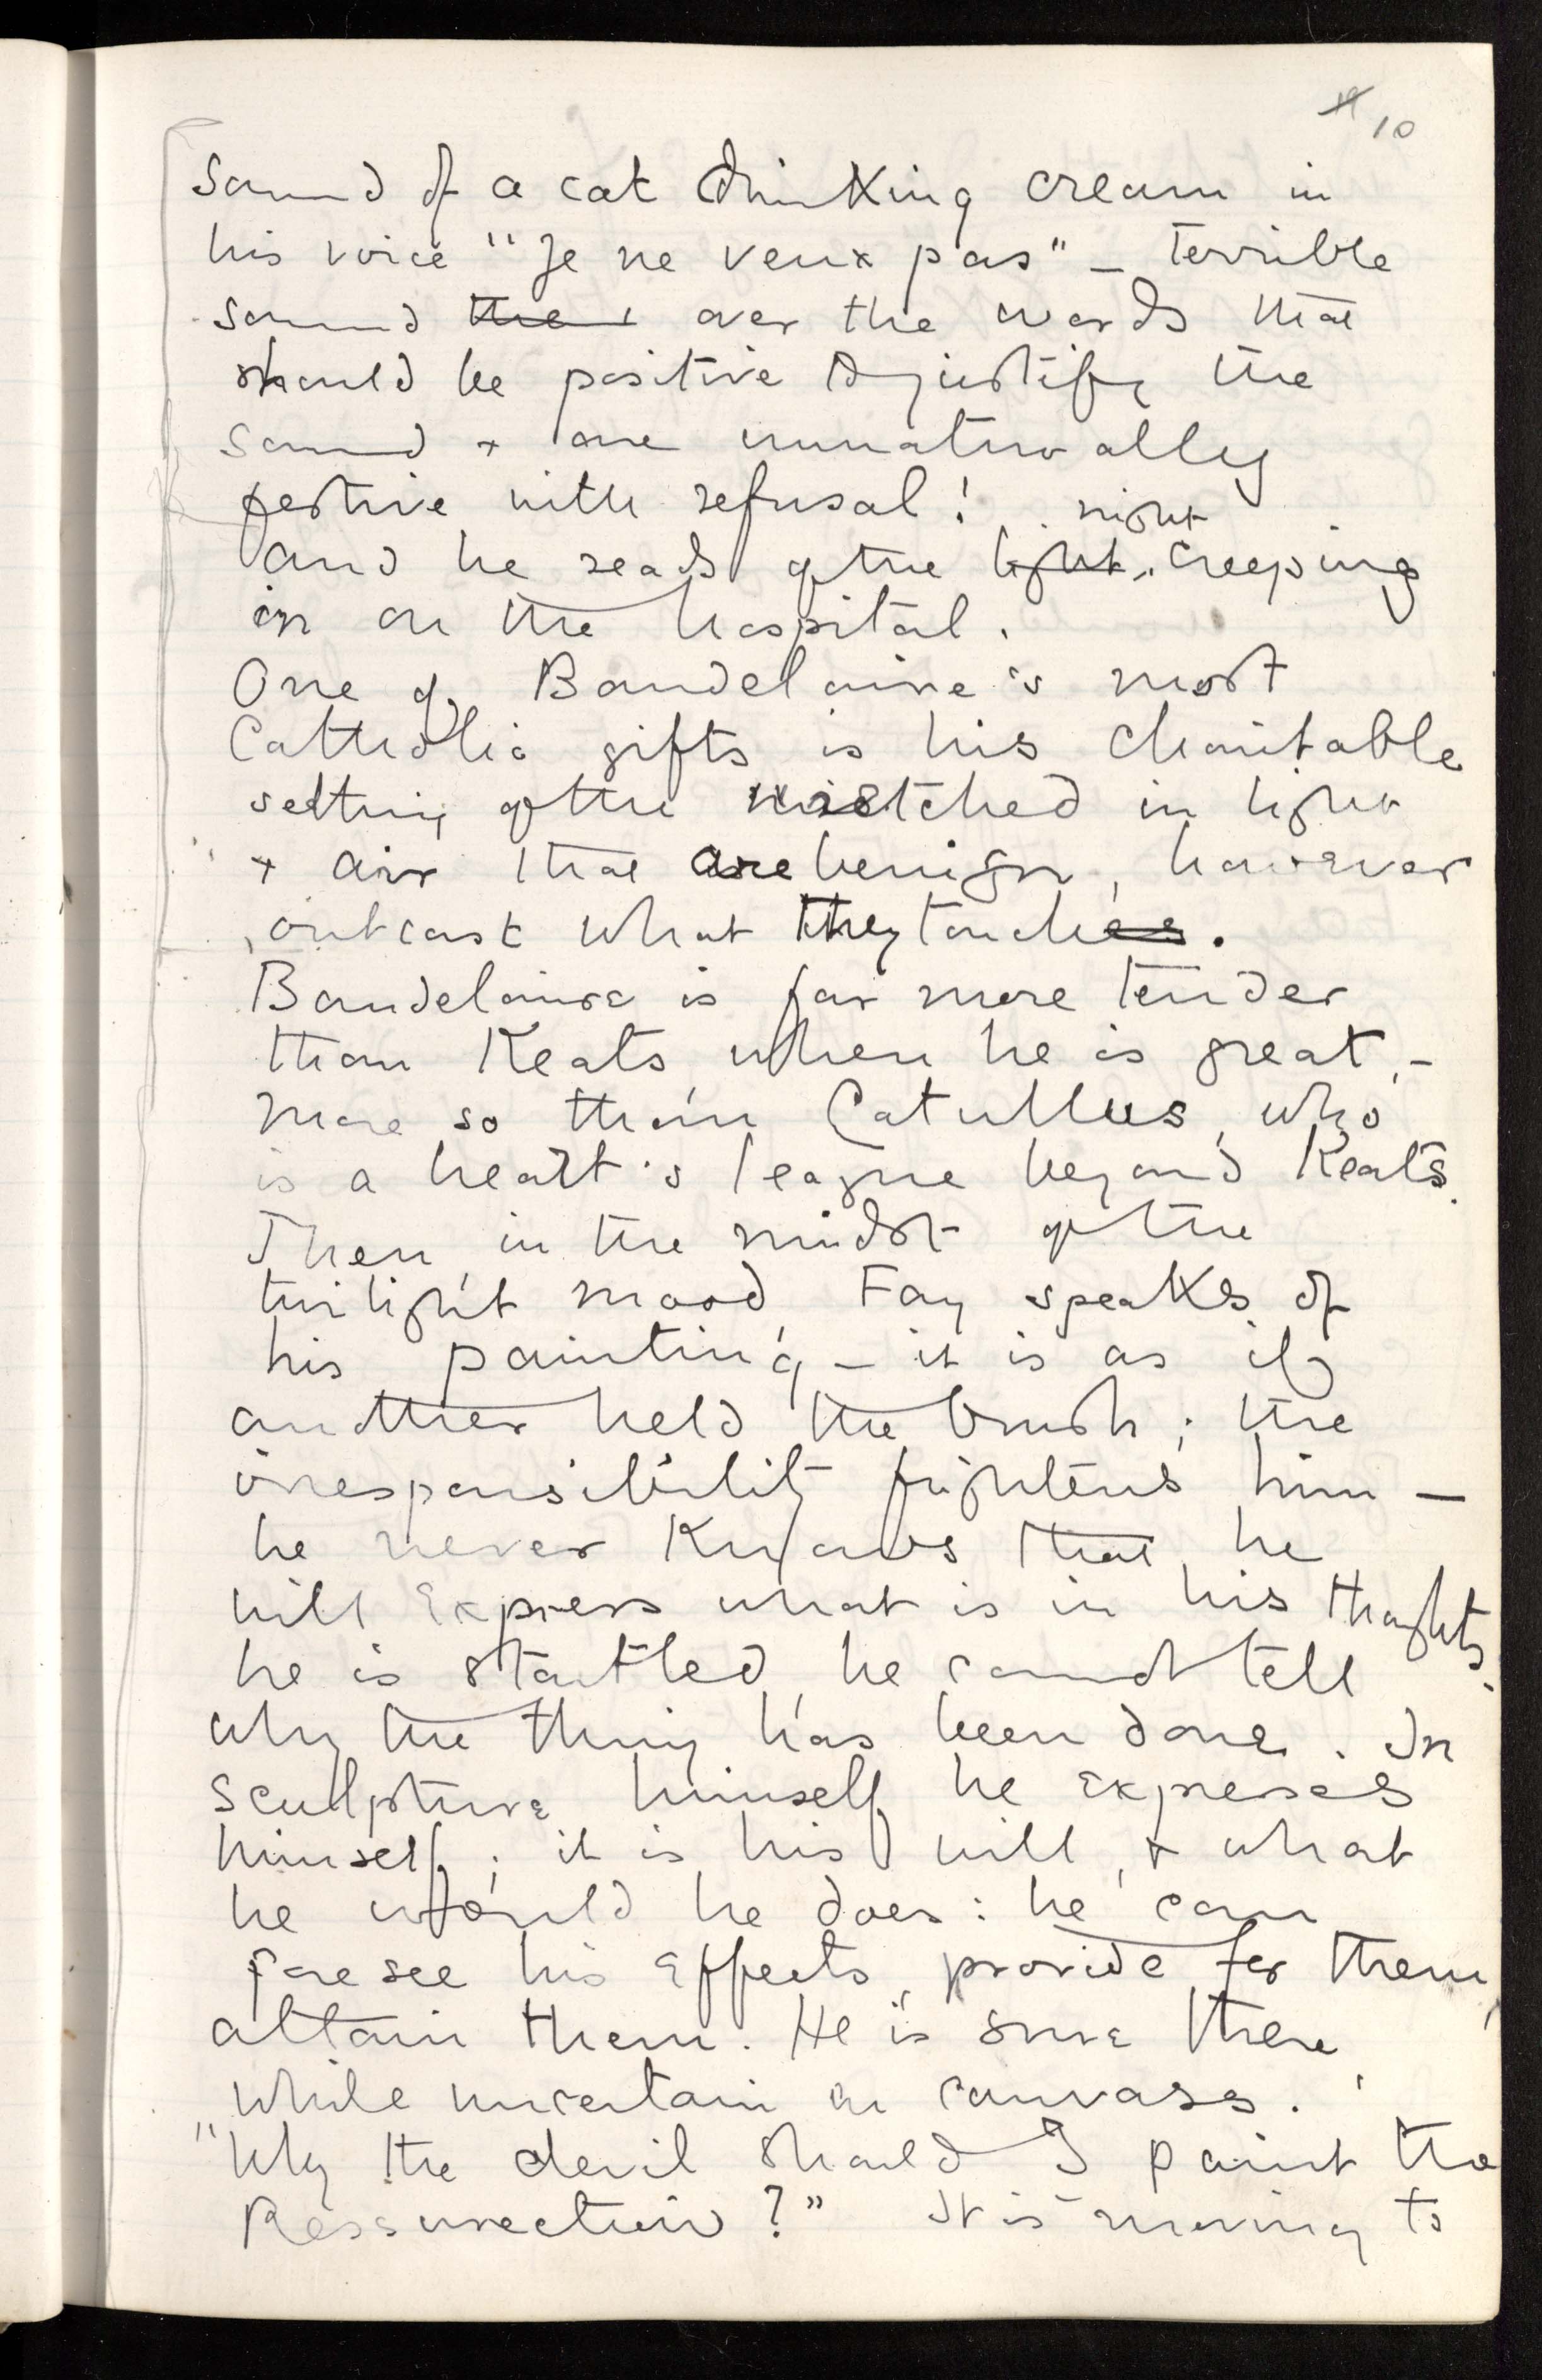 10
sound of a cat drinking cream in
his voice "Je ne veux pas" – terrible
sound over the words that
should be positive to justify the
sound & are unnaturally
festive with refusal!
night
And he reads of the light, creeping
in on the hospital.
One of Baudelaire's most
Catholic gifts is his charitable
setting of the wretched in light
& air that are benign, however
outcast what they touches.
Baudelaire is far more tender
than Keats when he is great, –
more so than Catullus, who
is a heart's league beyond Keats.
Then in the midst of the
twilight mood Fay speaks of
his painting – it is as if
another held the brush; the
irresponsibility frightens him –
he never knows that he
will express what is in his thoughts,
he is startled, he cannot tell
why the thing has been done. In
sculpture himself he expresses
himself; it is his will, & what
he would he does: he can
foresee his effects, provide for them,
attain them. He is sure there,
while uncertain on canvass.
"Why the devil should I paint the
Ressurection?" It is moving to